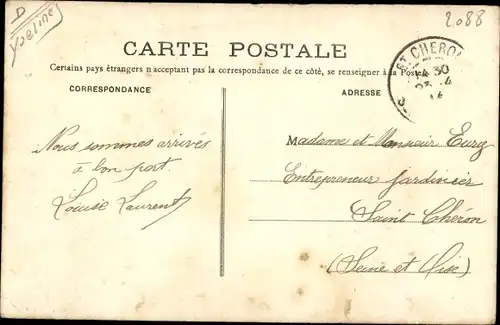 D
Yveline
2088
CARTE POSTALE
Certains pays étrangers n'acceptant pas la correspondance de ce côté, se renseigner à la Poste
CORRESPONDANCE
ADRESSE
ST CHERON
30
Nous sommes arrivés
à bon port.
Louise Laurent
Madame et Monsieur Eury
Entrepreneur jardinier
Saint Chéron
(Seine et Oise)